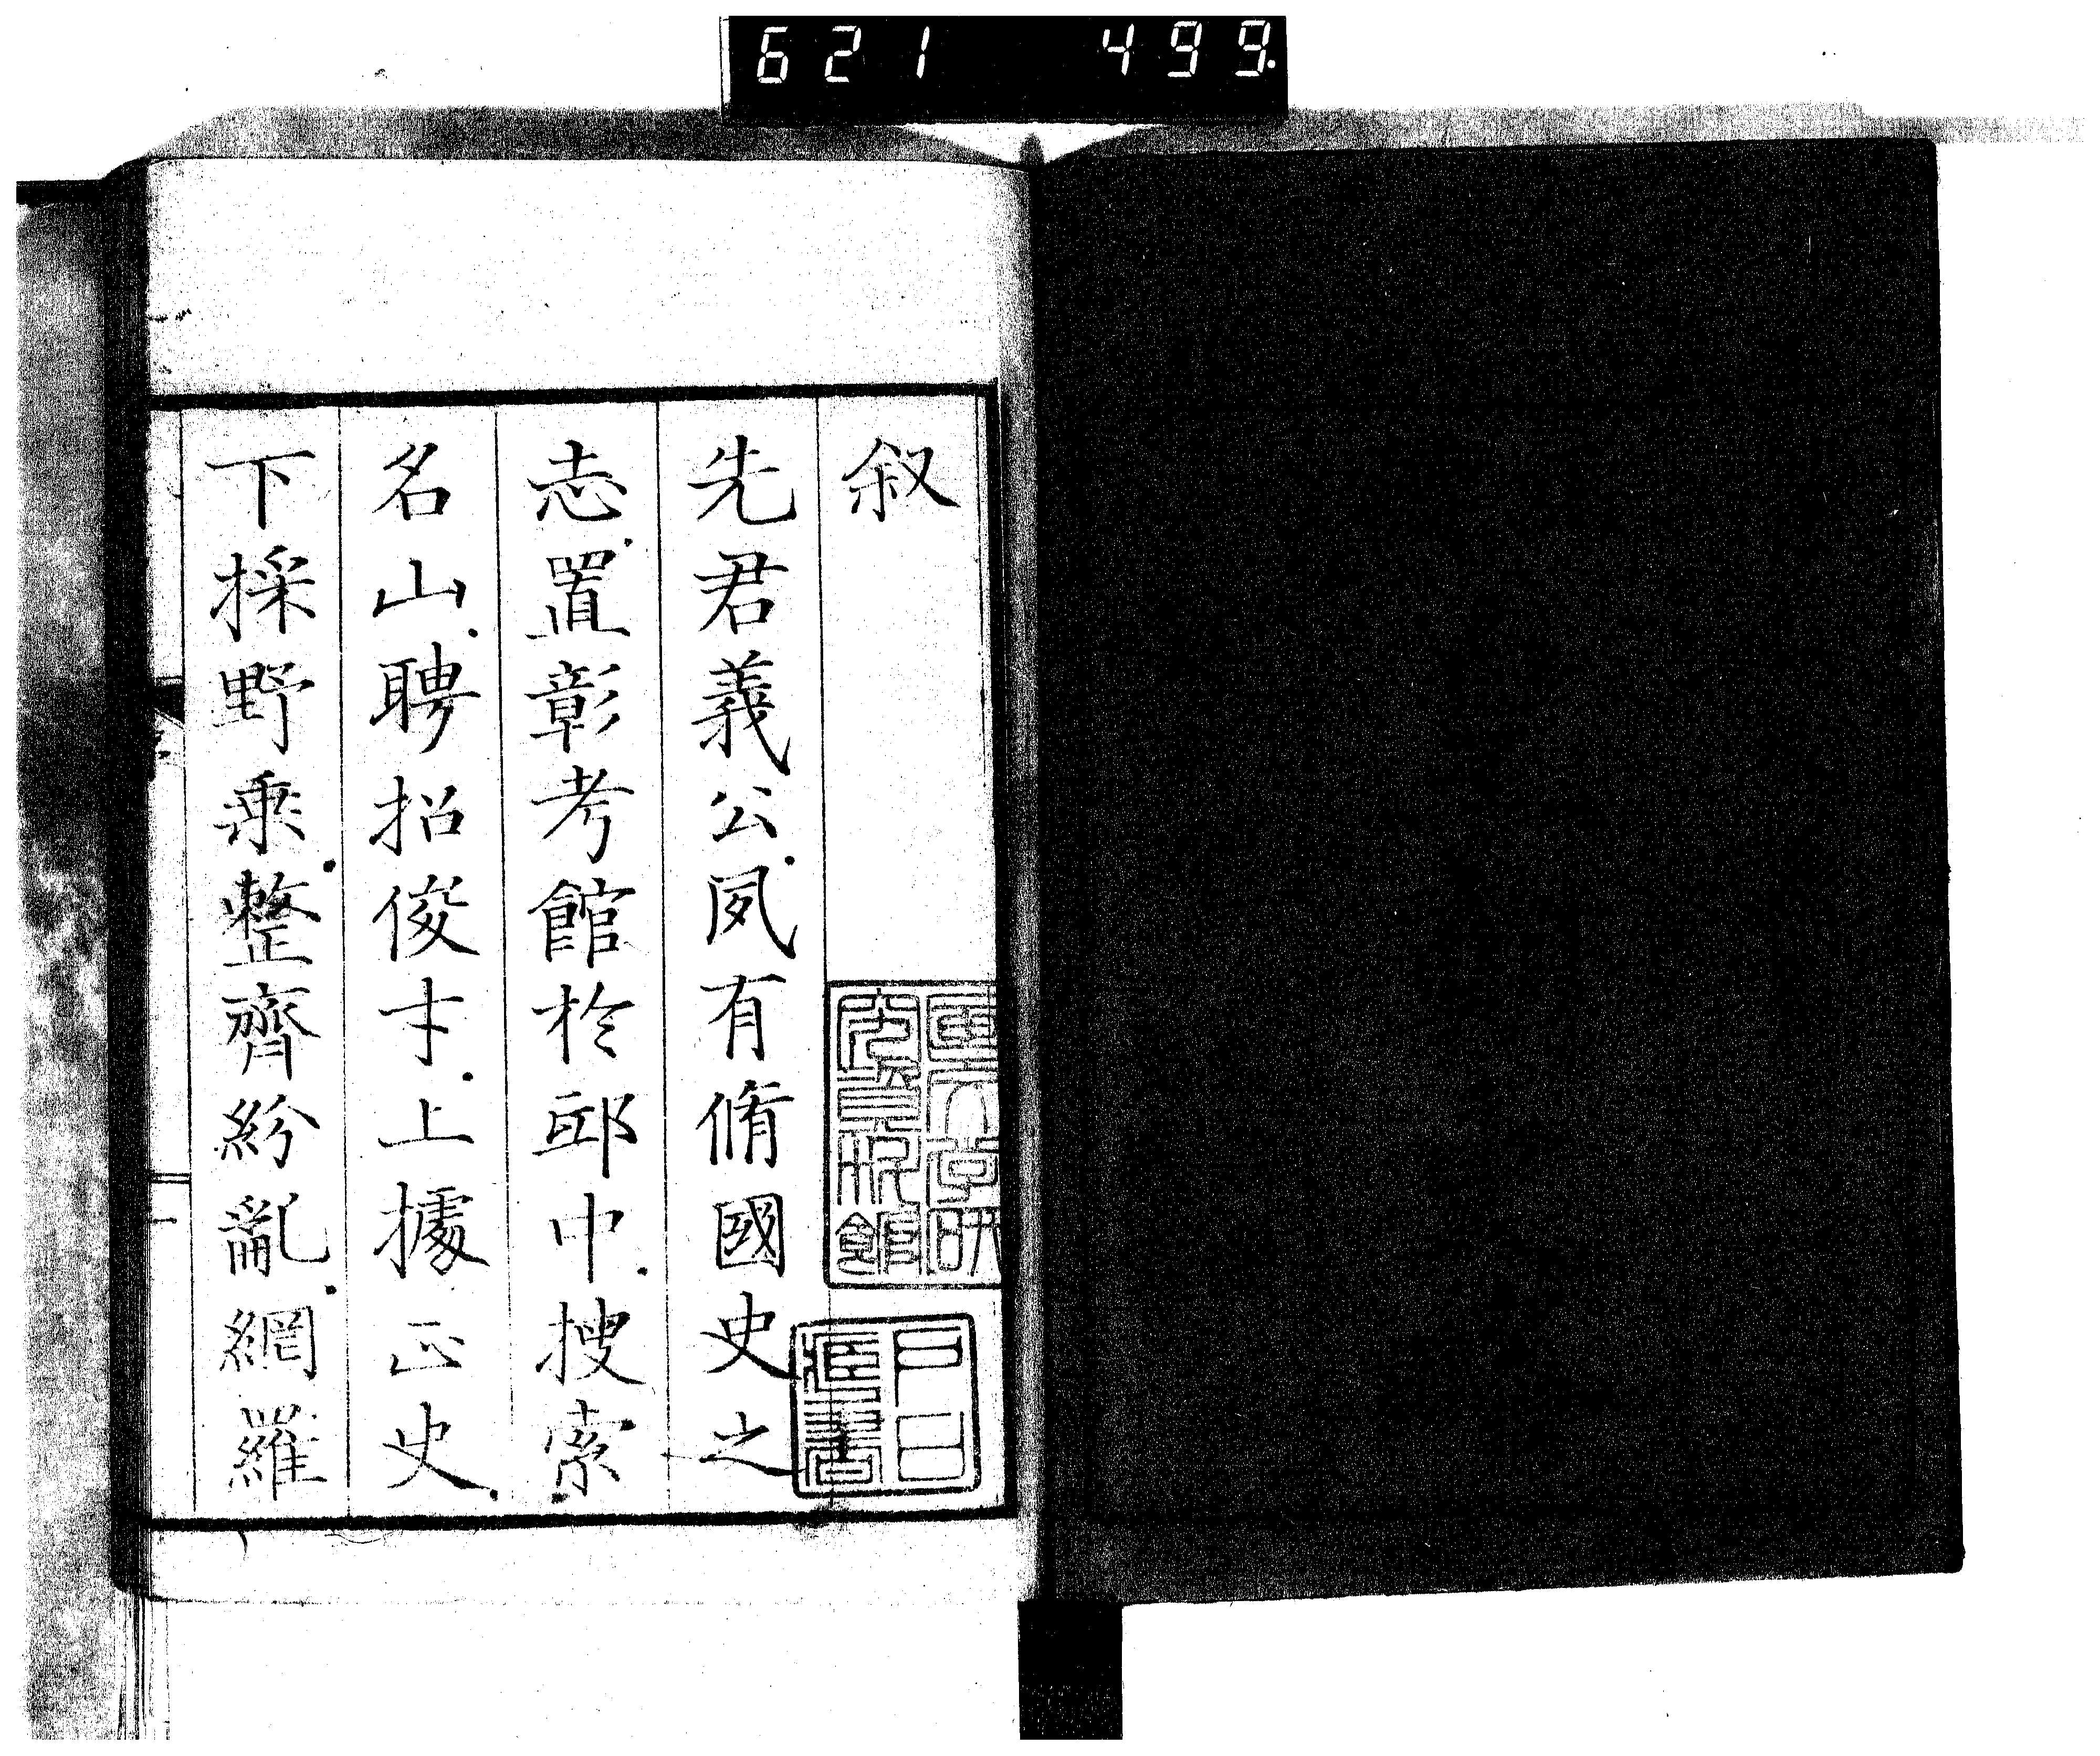 621 499.
叙
先君義公夙有脩國史之
志置彰考館於邸中搜索
名山聘招俊才上據正史
下採野乘整齊紛亂網羅